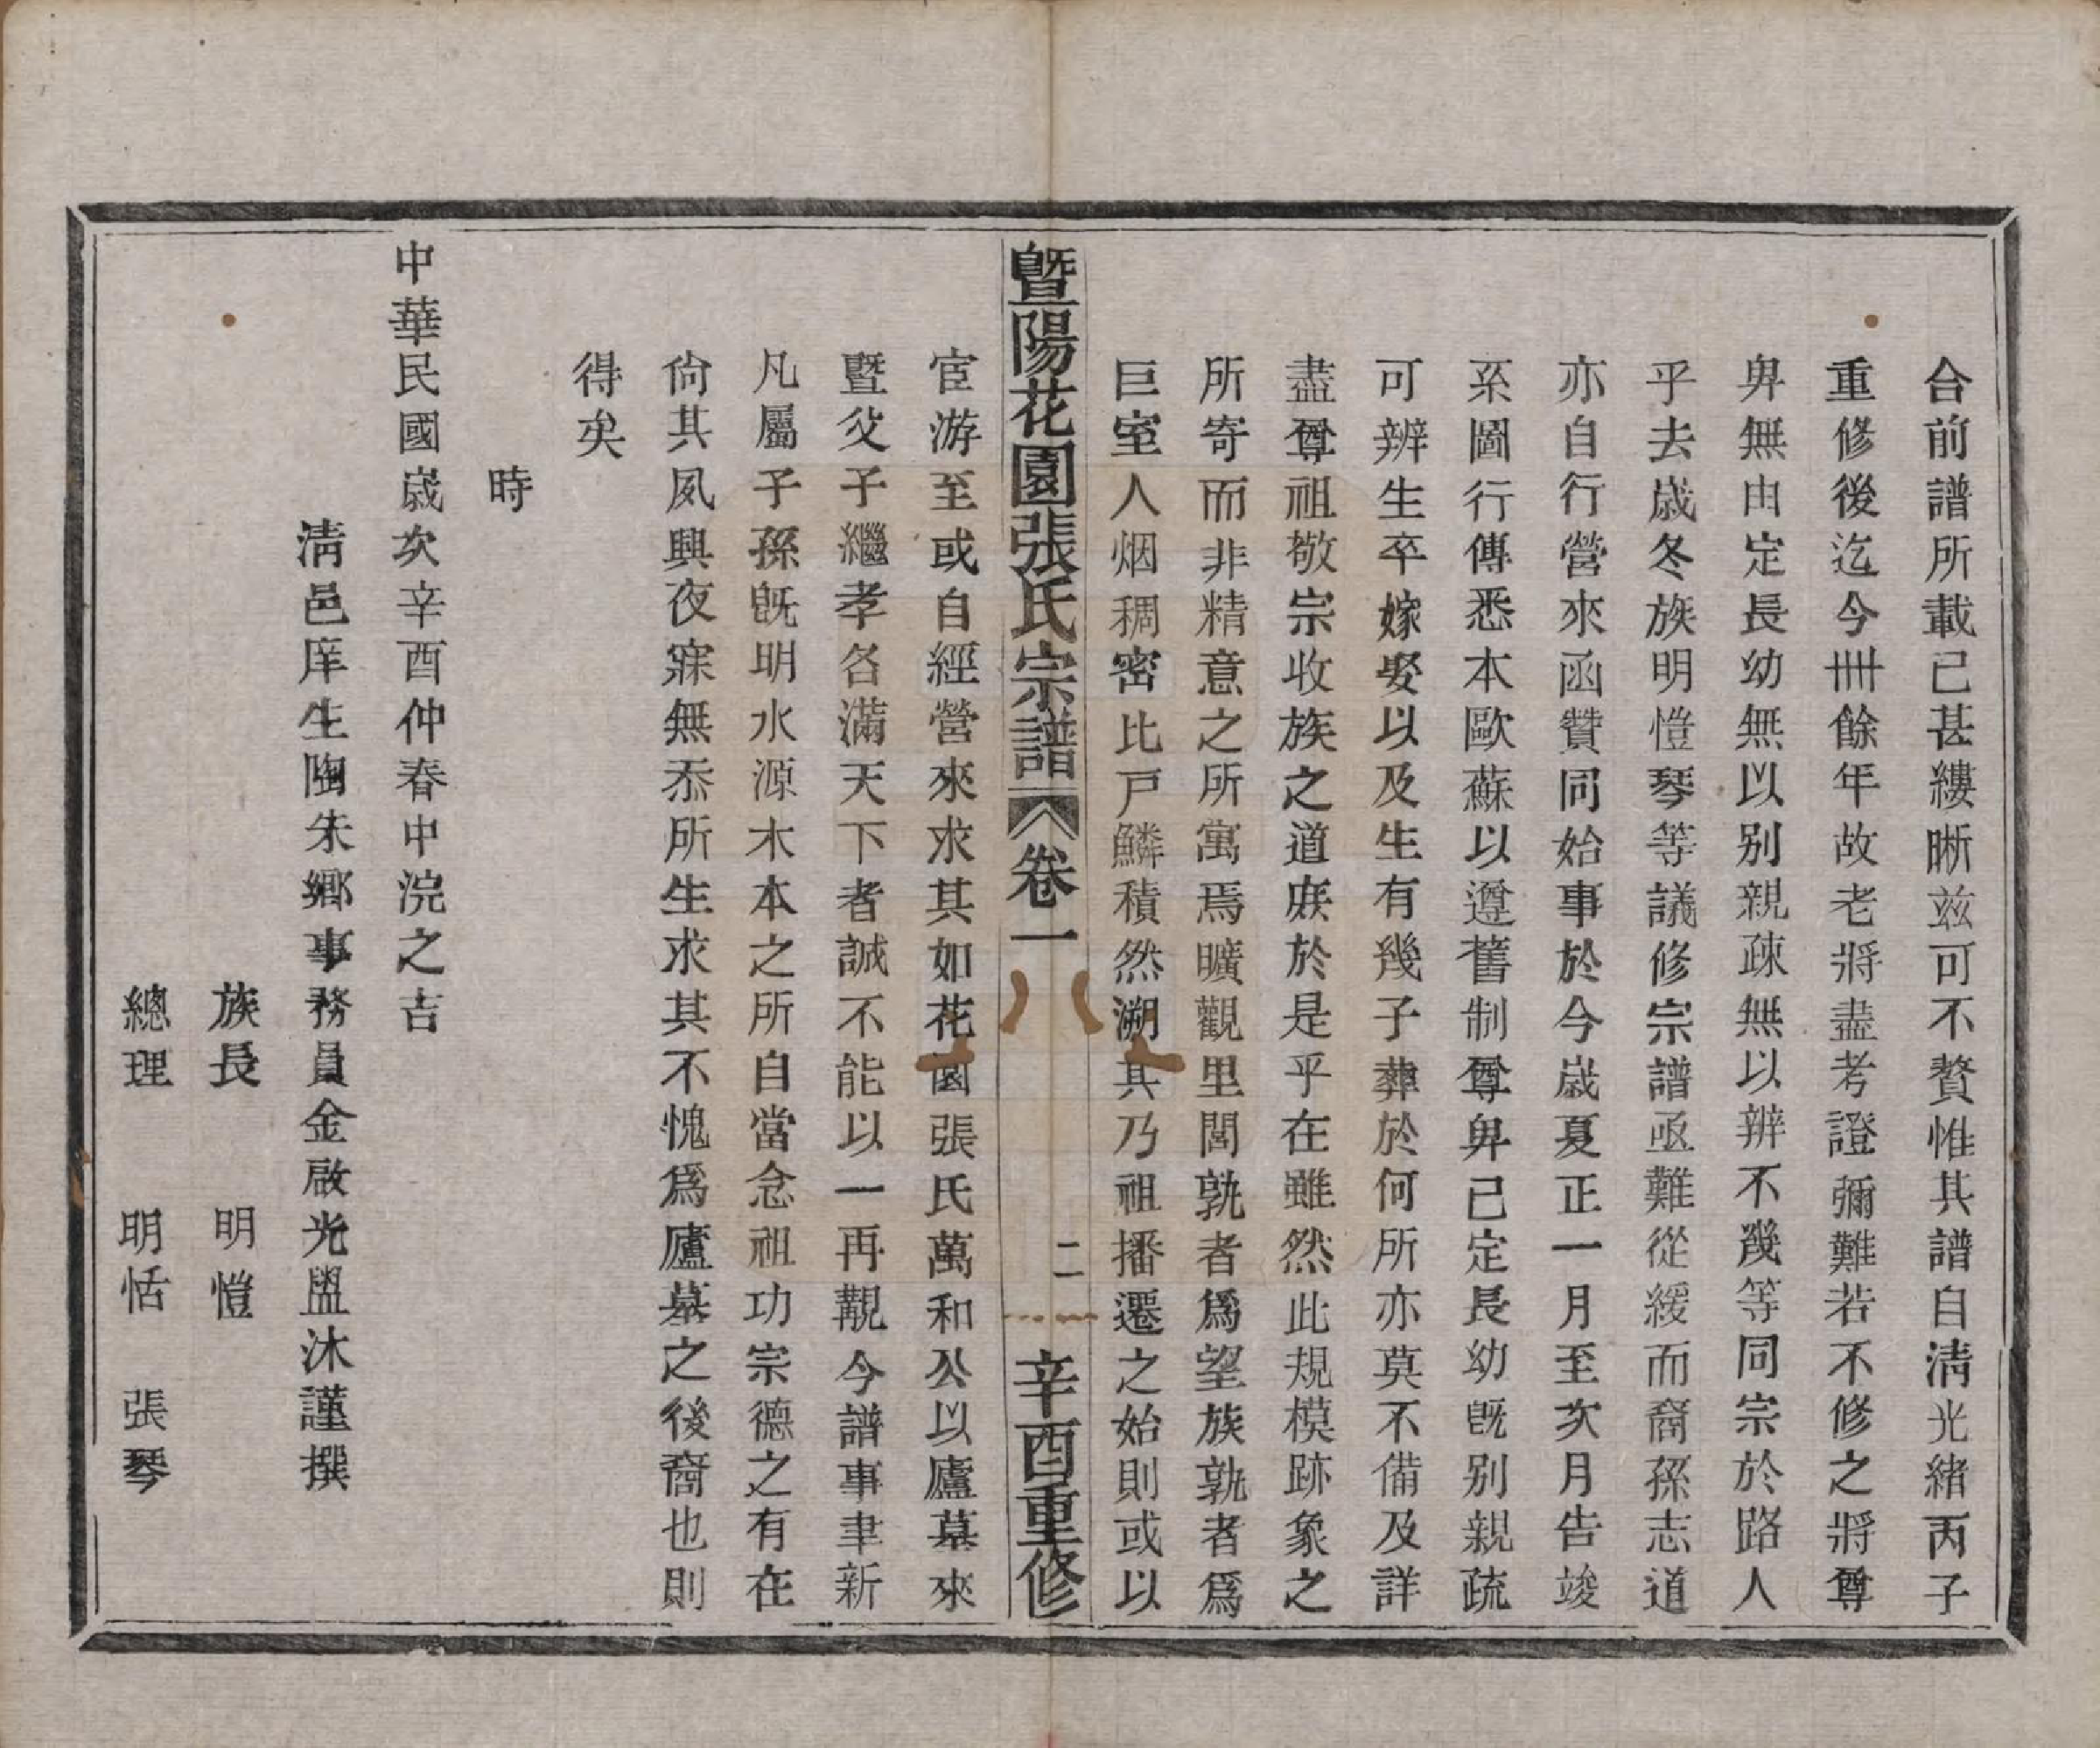 合前譜所載已甚縷晰玆可不贅惟其譜自淸光緒丙子
重修後迄今卌餘年故老將盡考證彌難若不修之將尊
卑無由定長幼無以别親疎無以辨不幾等同宗於路人
乎去歲冬族明愷琴等議修宗譜亟難從緩而裔孫志道
亦自行營來函贊同始事於今歲夏正一月至次月告竣
系圖行傳悉本歐蘇以遵舊制尊卑已定長幼旣别親疏
可辨生卒嫁娶以及生有幾子葬於何所亦莫不備及詳
盡尊祖敬宗收族之道庶於是乎在雖然此規模跡象之
所寄而非精意之所寓焉曠觀里閭孰者爲望族孰者爲
巨室人烟稠密比戸鱗積然溯其乃祖播遷之始則或以
暨陽花園張氏宗譜 卷一 二 辛酉重修
宦游至或自經營來求其如花園張氏萬和公以廬墓來
暨父子繼孝各滿天下者誠不能以一再覯今譜事聿新
凡屬子孫旣明水源木本之所自當念祖功宗德之有在
尙其夙興夜寐無忝所生求其不愧爲廬墓之後裔也則
得矣
時
中華民國歲次辛酉仲春中浣之吉
淸邑庠生陶朱鄉事務員金啟光盥沐謹撰
族長 明愷
總理 明恬 張琴